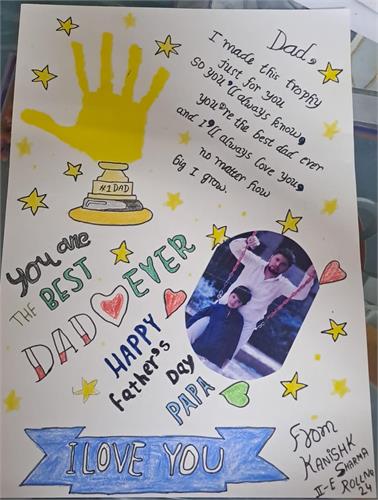 Dad,
I made this trophy
just for you
so you'll always know,
you're the best dad ever
and I'll always love you,
no matter how
big I grow.
#1 DAD
You are
THE BEST
DAD EVER
HAPPY
Father's
Day
PAPA
I LOVE YOU
From
KANISHK
SHARMA
II-E ROLLNO
24